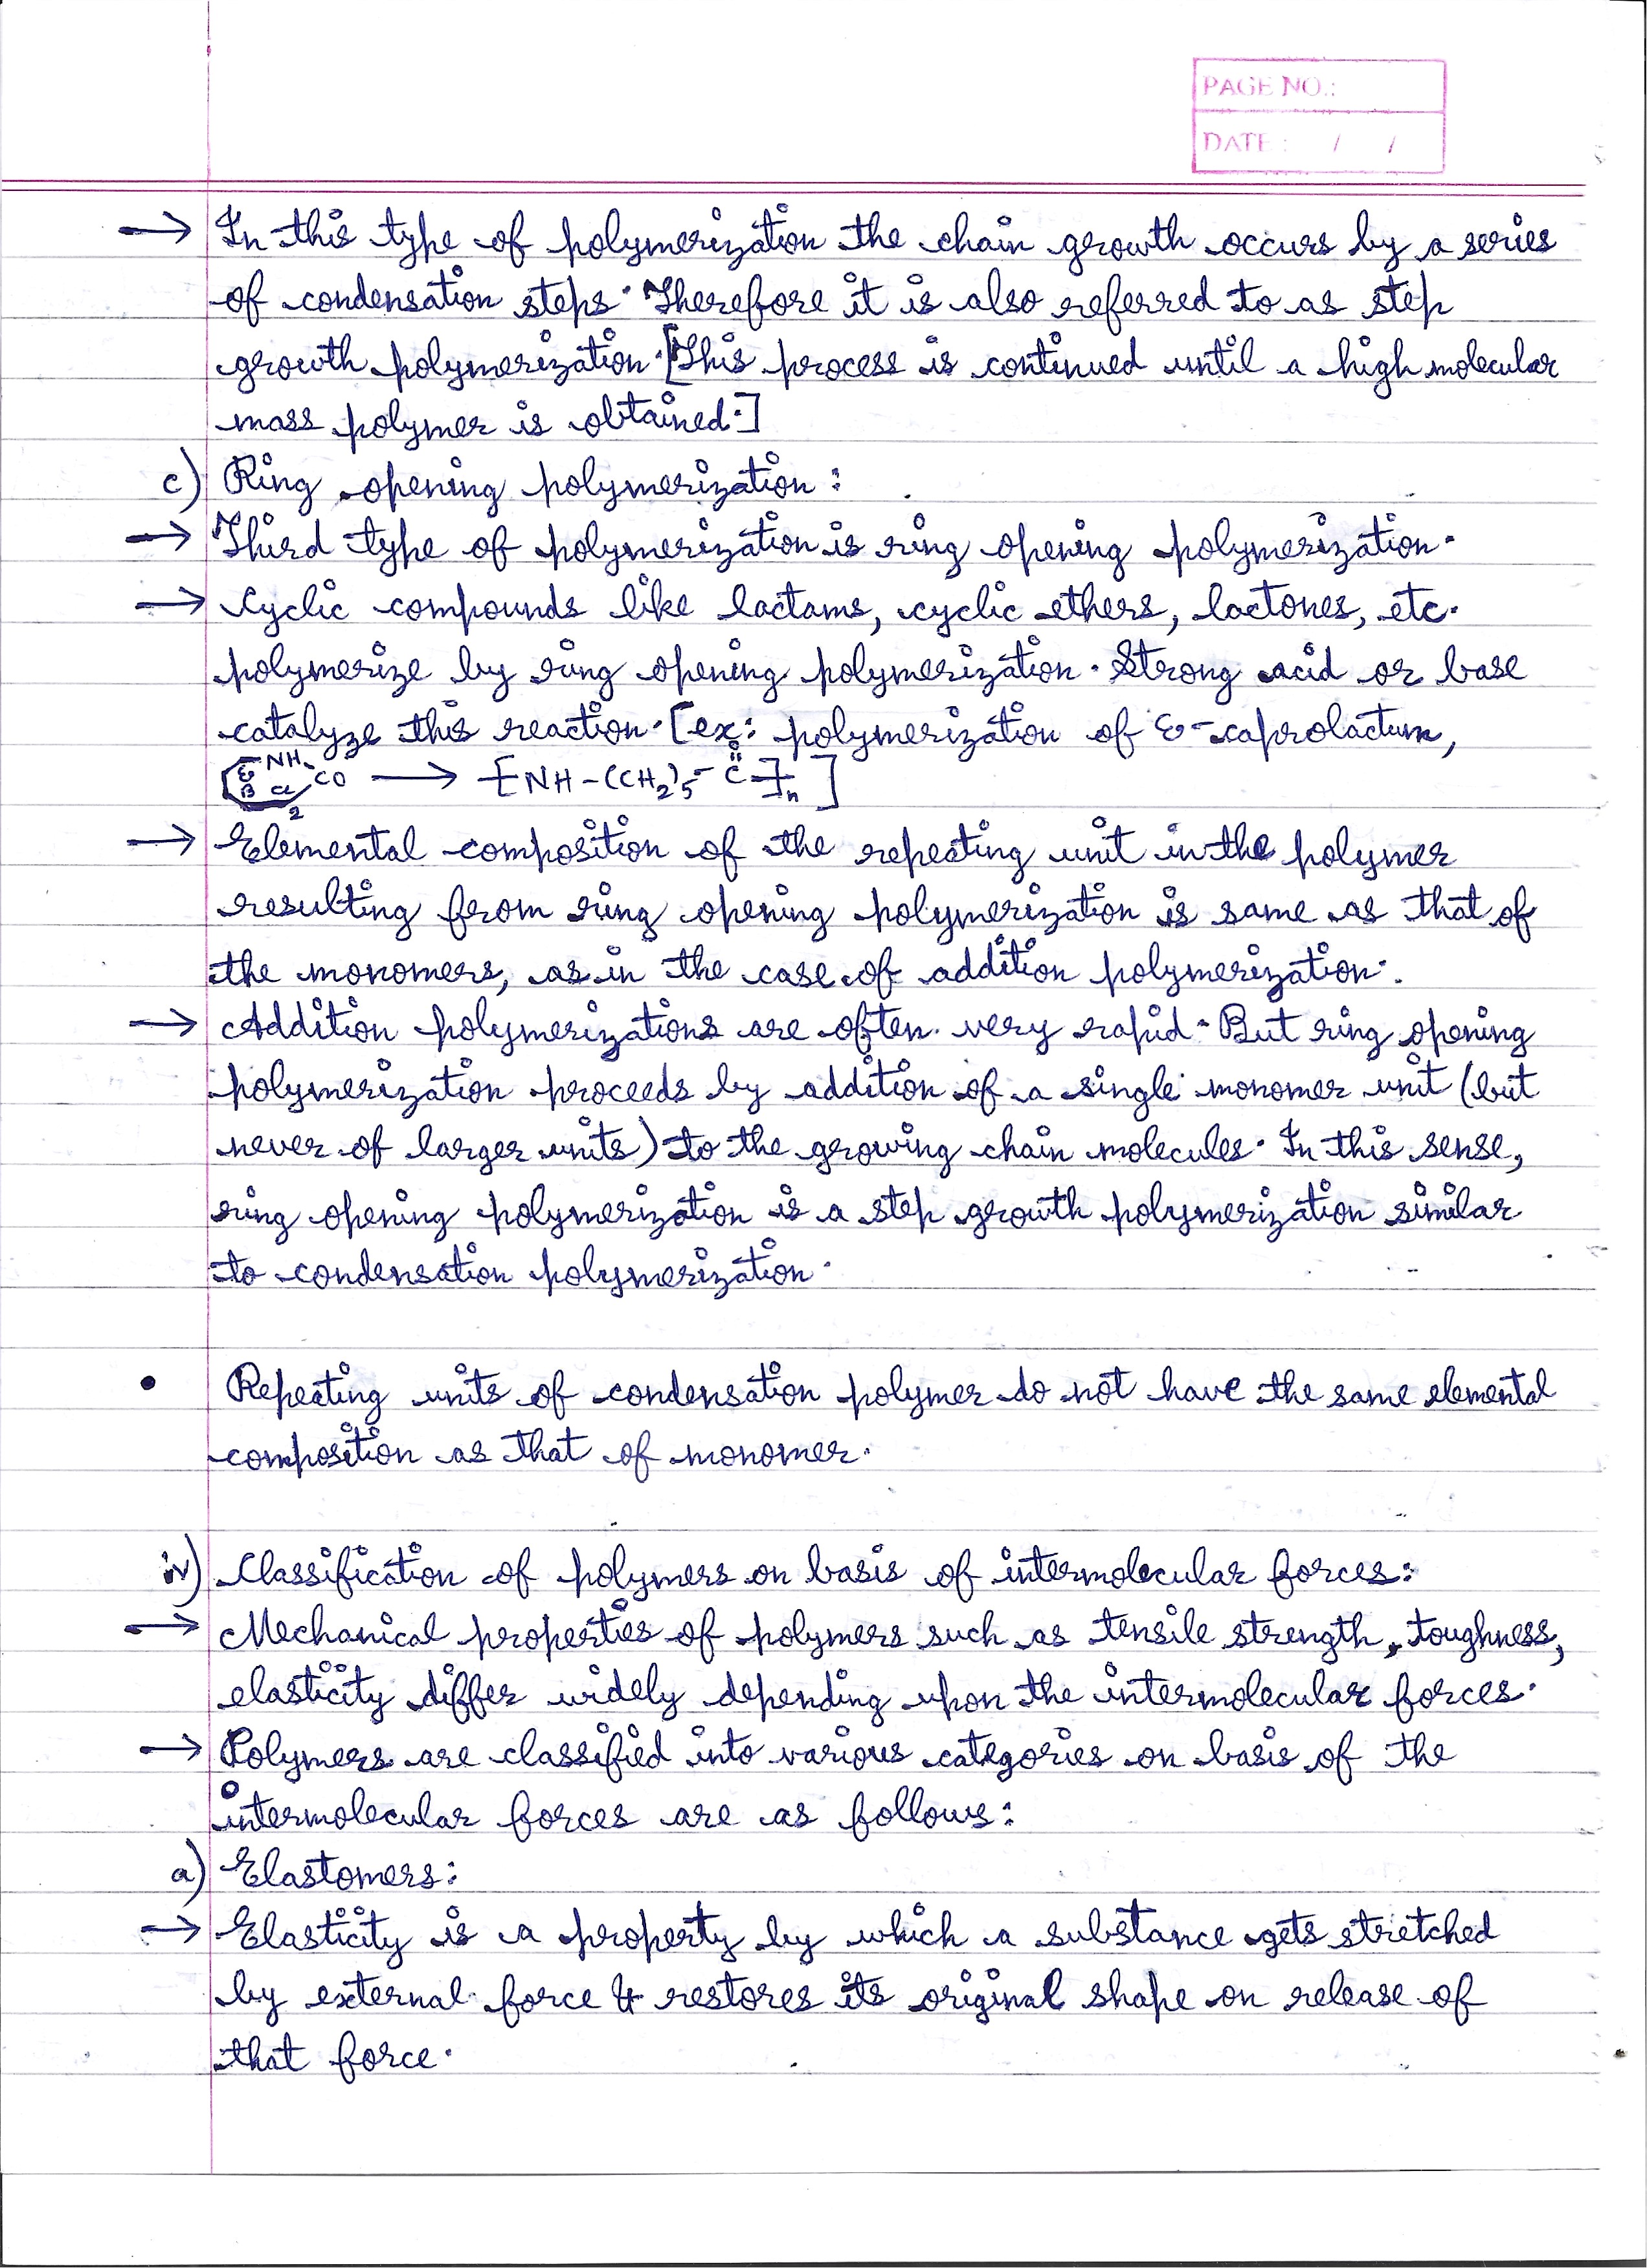 PAGE NO.:
DATE : / /
→ In this type of polymerization the chain growth occurs by a series
of condensation steps. Therefore it is also referred to as step
growth polymerization. [This process is continued until a high molecular
mass polymer is obtained.]
c) Ring opening polymerization:
→ Third type of polymerization is ring opening polymerization.
→ Cyclic compounds like lactams, cyclic ethers, lactones, etc.
polymerize by ring opening polymerization. Strong acid or base
catalyze this reaction. [ex: polymerization of ε-caprolactum,
NH CO ε β α → -[NH-(CH₂)₅-C(=O)]-n ]
→ Elemental composition of the repeating unit in the polymer
resulting from ring opening polymerization is same as that of
the monomers, as in the case of addition polymerization.
→ Addition polymerizations are often very rapid. But ring opening
polymerization proceeds by addition of a single monomer unit (but
never of larger units) to the growing chain molecules. In this sense,
ring opening polymerization is a step growth polymerization similar
to condensation polymerization.
• Repeating units of condensation polymer do not have the same elemental
composition as that of monomer.
iv) Classification of polymers on basis of intermolecular forces:
→ Mechanical properties of polymers such as tensile strength, toughness,
elasticity differ widely depending upon the intermolecular forces.
→ Polymers are classified into various categories on basis of the
intermolecular forces are as follows:
a) Elastomers:
→ Elasticity is a property by which a substance gets stretched
by external force & restores its original shape on release of
that force.